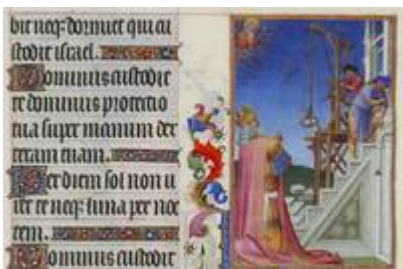 bit neq; dormiet qui cu
stodit israel.
Dominus custodit
te dominus protectio
tua super manum dex
teram tuam.
Per diem sol non u
ret te neq; luna per noc
tem.
Dominus custodit